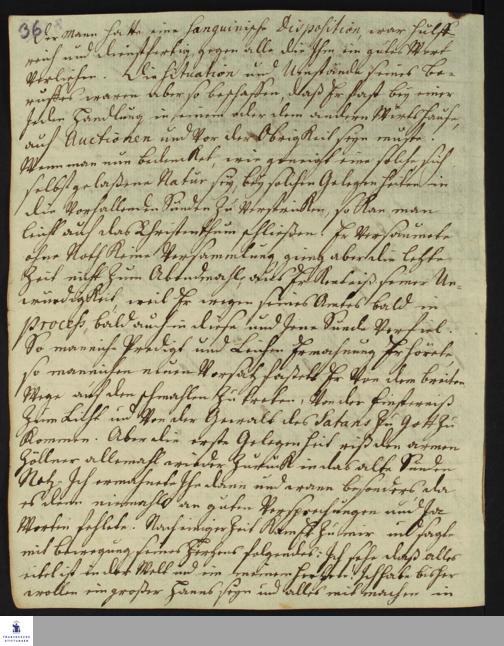 36
Der Mann hatte eine Sanguinische Disposition, war hülff
reich und dienstfertig gegen alle die Ihm ein gutes Wort
verliehen. Die Situation und Umstände seines Be-
ruffes waren aber so beschaffen, daß Er fast bey einer
jeden Handlung in seinem oder dem andern Wirthshause,
auf Auctionen und vor der Obrigkeit seyn muste.
Wenn man nun bedencket, wie geneigt eine solche sich
selbst gelaßene Natur sey, bey solchen Gelegenheiten in
die vorfallenden Sünden zu verstricken, so kan man
leicht auf das Christenthum schließen. Er versäumete
ohne Noth keine Versammlung gieng aber die letzte
Zeit nicht zum Abendmahl aus Erkentniß seiner Un-
würdigkeit, weil Er wegen seines Amtes bald in
process, bald auch in diese und Jene Sünde verfiel.
So manche Predigt und Ermahnung Er hörete
so manchen neuen Vorsatz faßete Er von dem breiten
Wege auf den schmahlen zu treten, von der Finsterniß
zum Licht und von der Gewalt des Satans zu Gott zu
kommen. Aber die erste Gelegenheit riß den armen
Zöllner allemahl wieder zurück in das alte Sünden
Netz. Ich ermahnete Ihn dann und wann besonders da
es dem niemahls an guten Versprechungen und Ja
Worten fehlete. Nach einiger Zeit kam Er zu mir und sagte
mit bewegung seines Hertzens folgendes: Ich sehe daß alles
eitel ist in der Welt und in meinem Hertzen. Ich habe bisher
wollen ein großer Hanns seyn und alles mit machen in
FRANCKESCHE
STIFTUNGEN